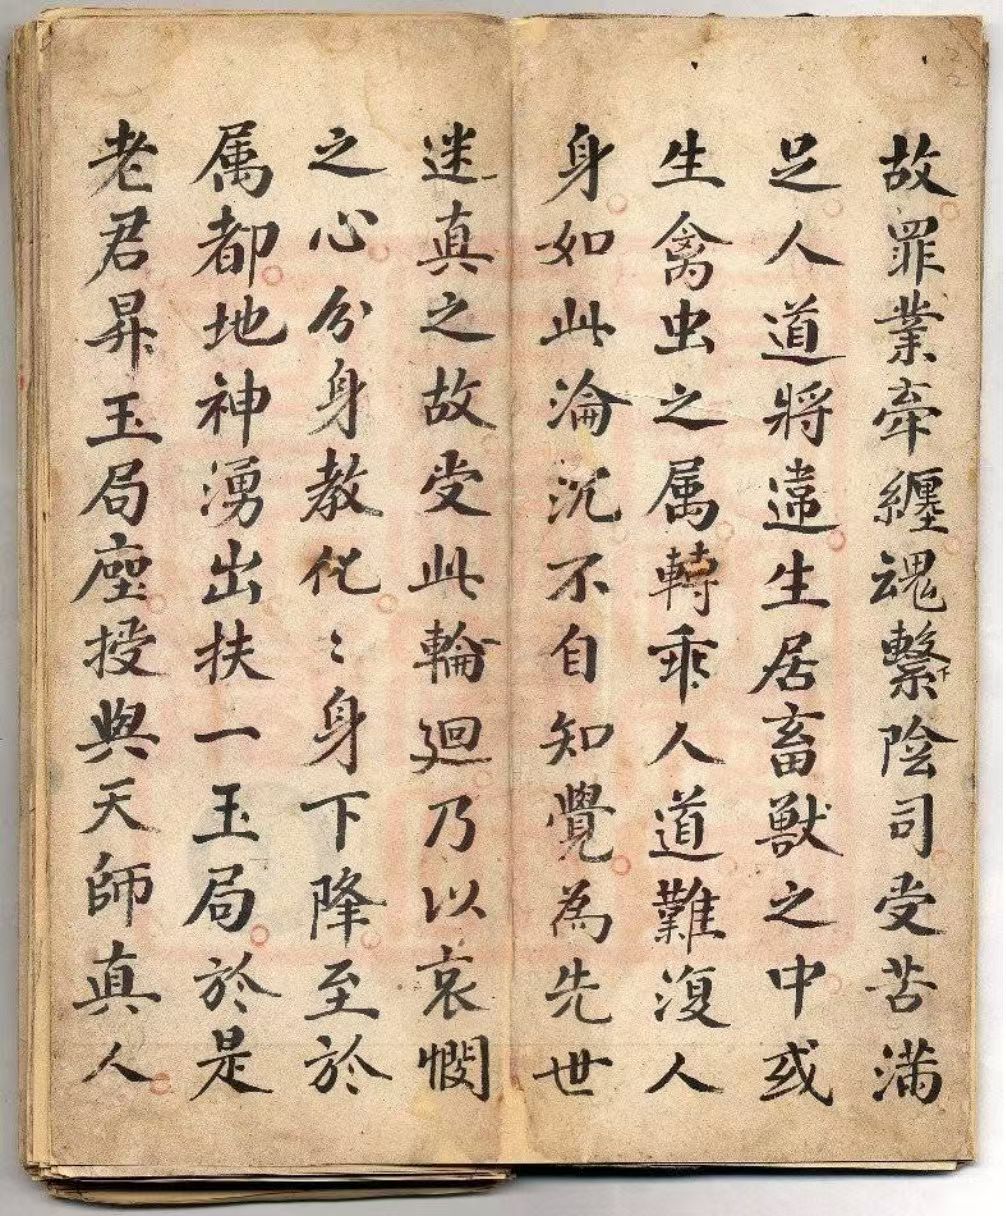 故罪業牽纏魂繫陰司受苦滿
足人道將違生居畜獸之中或
生禽虫之属轉乖人道難復人
身如此淪沉不自知覺為先世
迷真之故受此輪廻乃以哀憫
之心分身教化〻身下降至於
属都地神湧出扶一玉局於是
老君昇玉局座授與天師真人